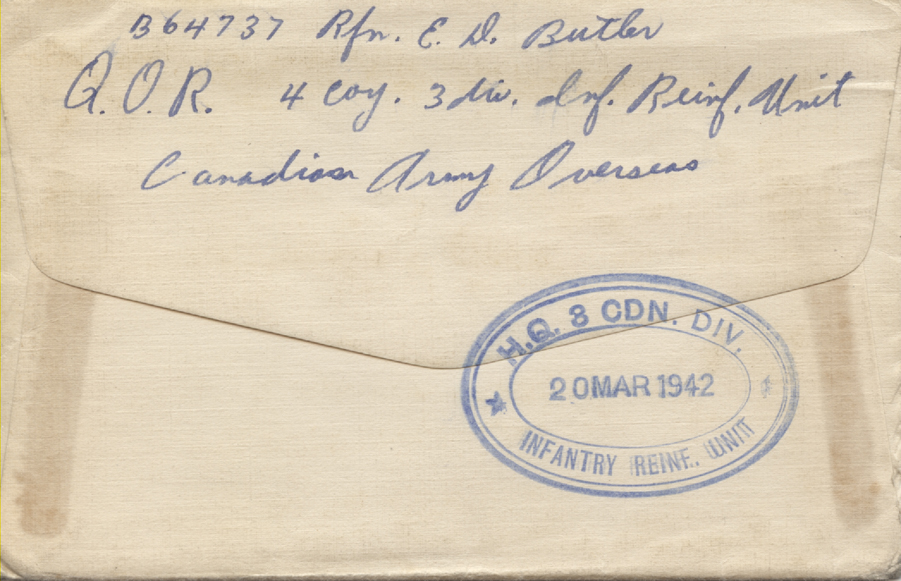 B64737 Rfn. E. D. Butler
Q.O.R. 4 coy. 3 div. Inf. Reinf. Unit
Canadian Army Overseas
H.Q. 3 CDN. DIV.
20 MAR 1942
INFANTRY REINF. UNIT